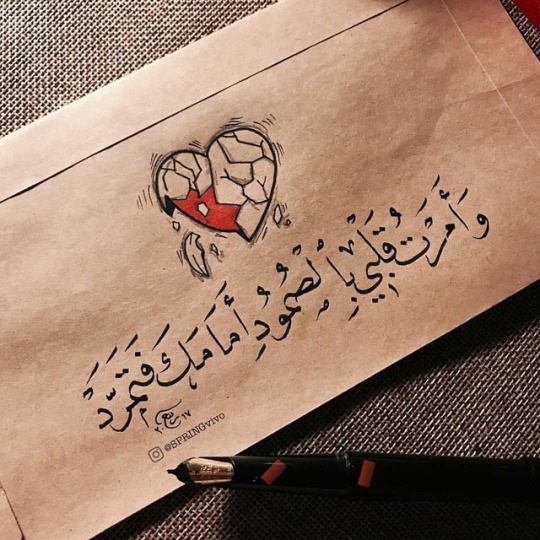 وَأَمَرْتُ قَلْبِي بِالْصُمُودِ أَمَامَكَ فَتَمَرَّدَ
٢٠١٧
@SPRINGvivo